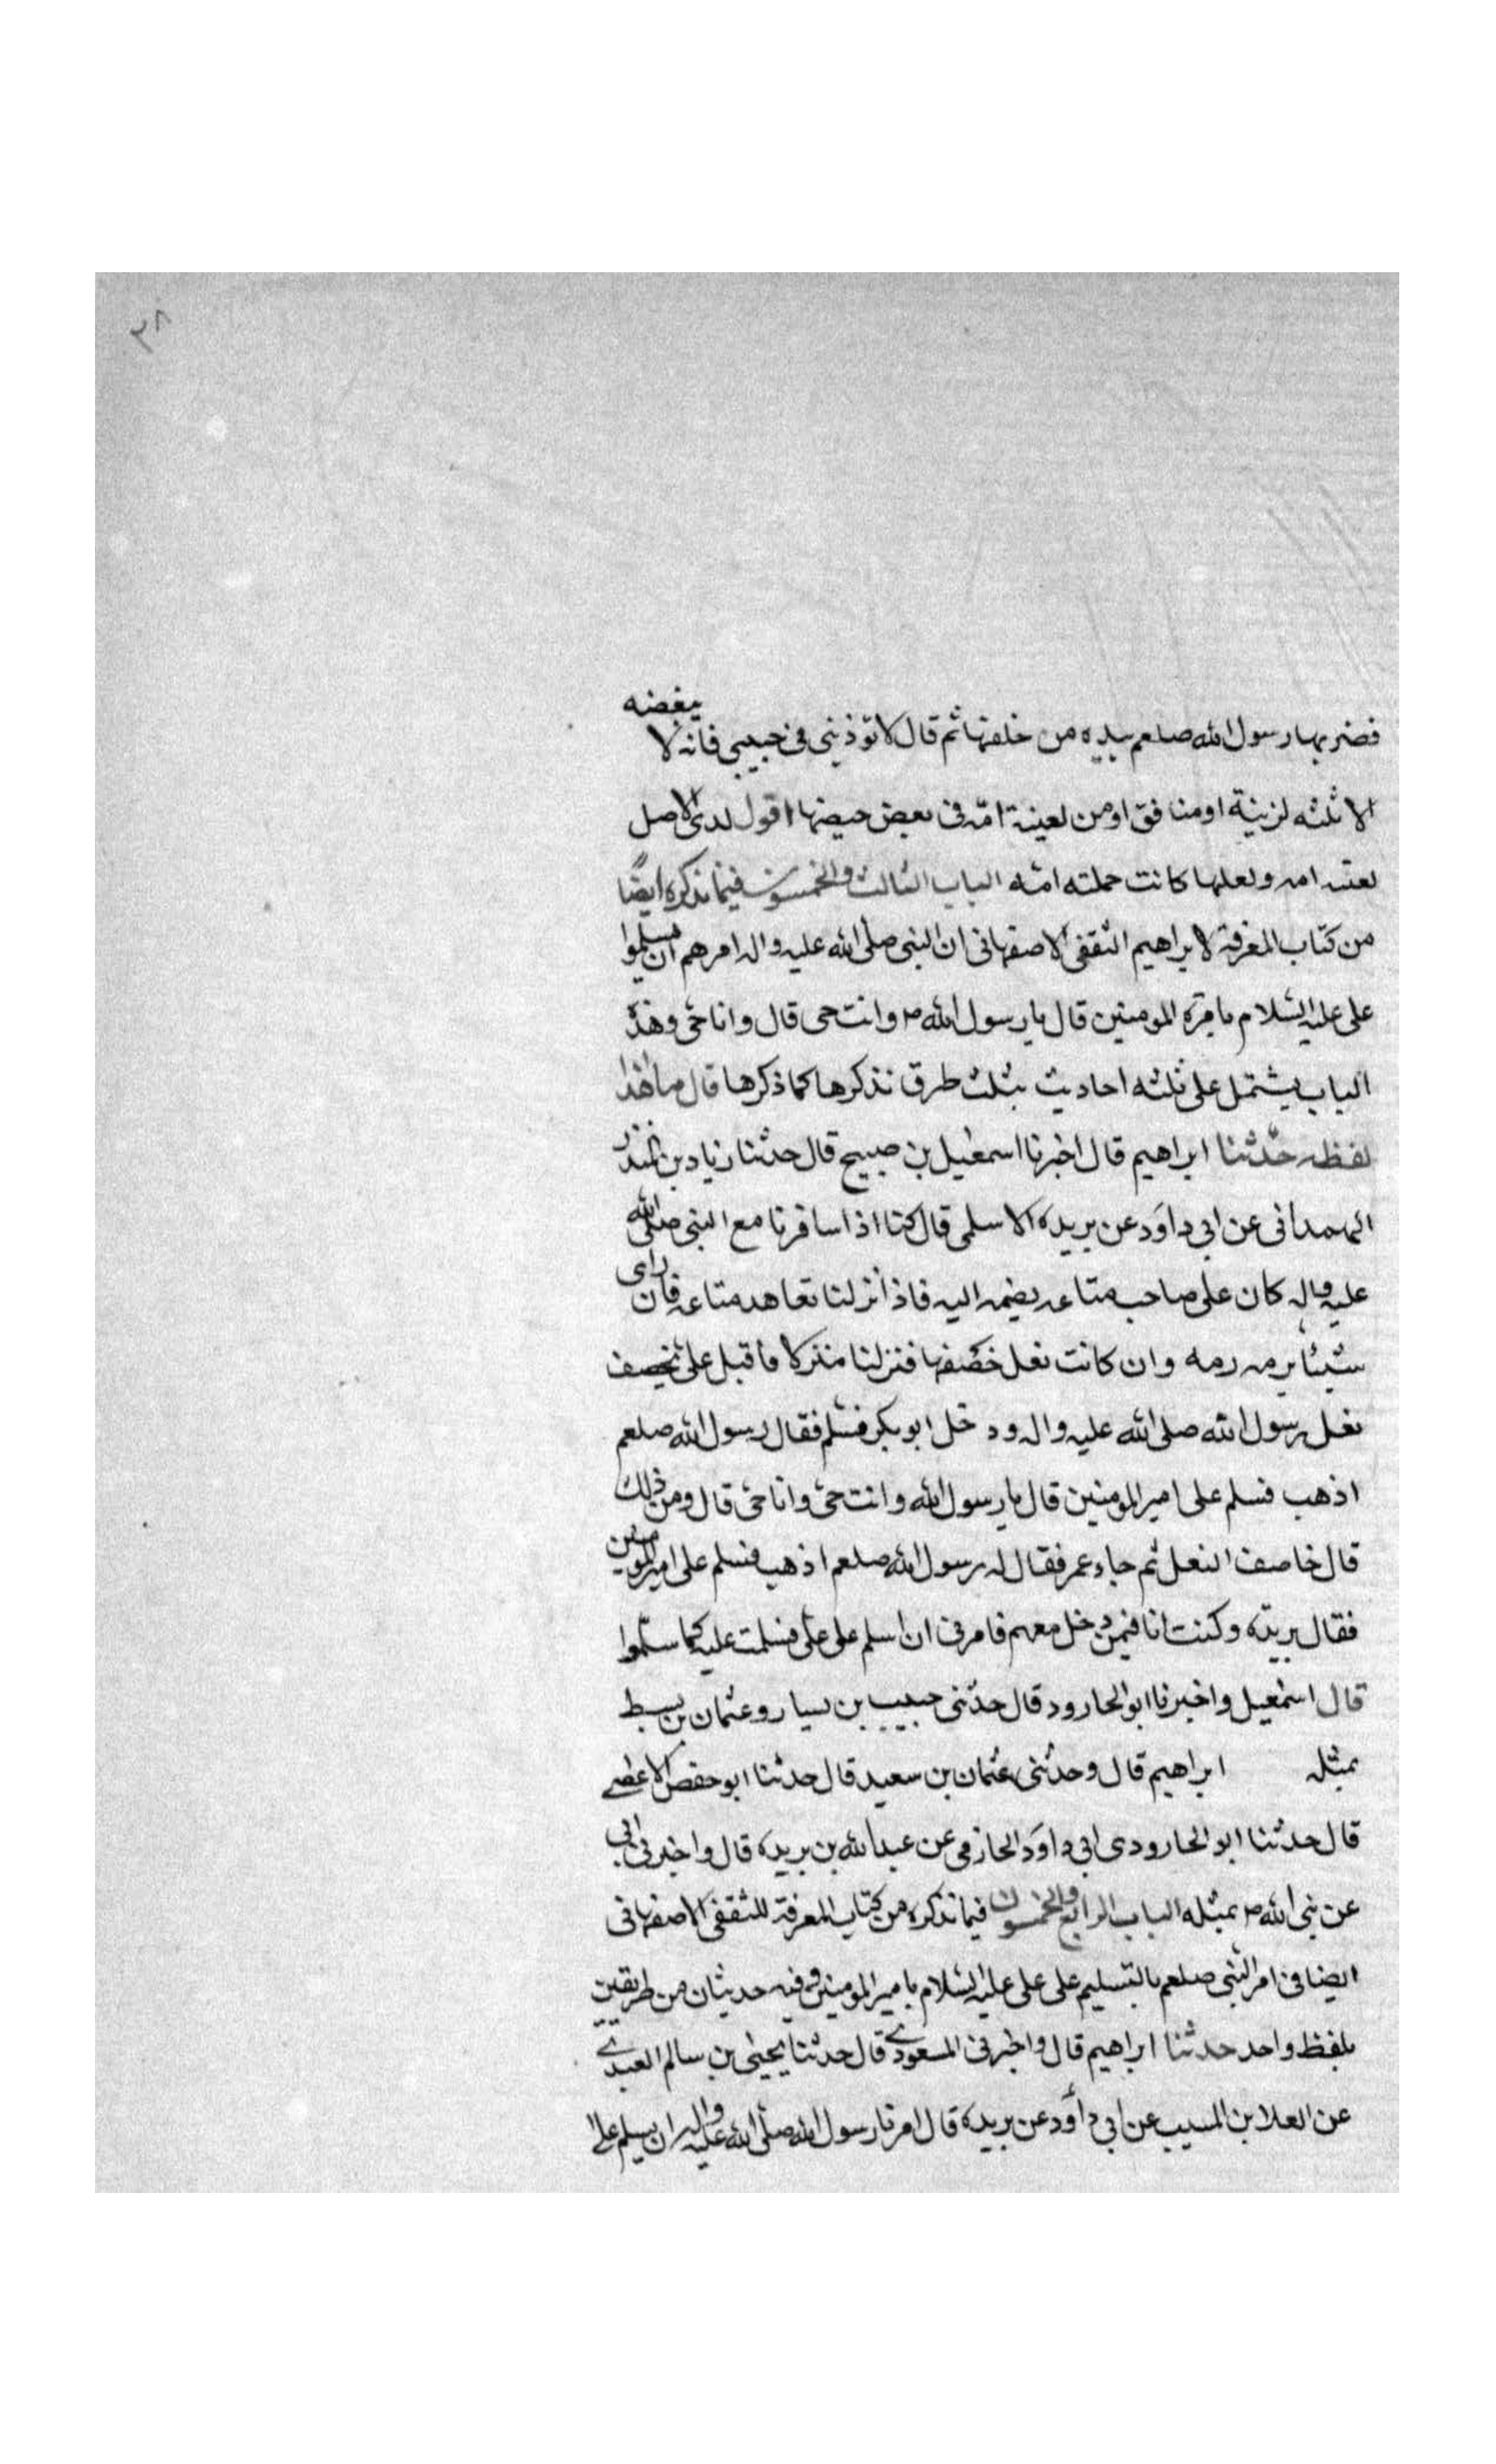 ٣٨
فضربها رسول الله صلعم بيده من خلفها ثم قال لا تؤذينى فى حبيبى فانه لا يبغضه
الا ثلثه لزنية او منافق او من امّه فى بعض حيضها اقول الاصل
امه ولعلها كانت حملته امّه الباب الثالث والخمسون فيما نذكره ايضًا
من كتاب المعرفة لابراهيم الثقفى الاصفهانى ان النبى صلى الله عليه واله امرهم ان يسلموا
على على عليه السلام المومنين قال يا رسول الله ص وانت حى قال وانا حىّ وهذا
الباب يشتمل على ثلثه احاديث بثلث طرق نذكرها كما ذكرها قال ما هذا
لفظه حدّثنا ابراهيم قال اخبرنا اسمعيل بن صبيح قال حدثنا زياد بن المنذر
الهمدانى عن ابى داوَد عن بريده الاسلمى قال كنا اذا سافرنا مع النبى صلى الله
عليه واله كان على صاحب متاعه يضمه اليه فاذا نزلنا تعاهد متاعه فان راى
شيئا يرمه رمه وان كانت نعل خصفها فنزلنا منزلا فاقبل على يخصف
نعل رسول الله صلى الله عليه واله ودخل ابو بكر فسلم فقال رسول الله صلعم
اذهب فسلم على امير المومنين قال يا رسول الله وانت حىّ وانا حىّ قال ومن ذلك
قال خاصف النعل ثم جاء عمر فقال له رسول الله صلعم اذهب فسلم على امير المومنين
فقال بريده وكنت انا فيمن دخل معهم فامرنى ان اسلم على علىّ فسلمت عليه كما سلّموا
قال اسمعيل واخبرنا ابو الجارود قال حدّثنى حبيب بن يسار وعثمان بن بسيط
بمثله ابراهيم قال وحدثنى عثمان بن سعيد قال حدثنا ابو حفص الاعشى
قال حدثنا ابو الجارودى ابى داوَد الحازمى عن عبد الله بن بريده قال واخبرنى ابى
عن نبى الله ص بمثله الباب الرابع والخمسون فيما نذكره من كتاب المعرفة للثقفى الاصفهانى
ايضا فى امر النبى صلعم بالتسليم على على عليه السلام بامير المومنين وفيه حديثان من طريقين
بلفظ واحد حدثنا ابراهيم قال واخبرنى المسعودى قال حدثنا يحيى بن سالم العبدى
عن العلا بن المسيب عن ابى داوَد عن بريده قال امرنا رسول الله صلى الله عليه واله ان يسلم على